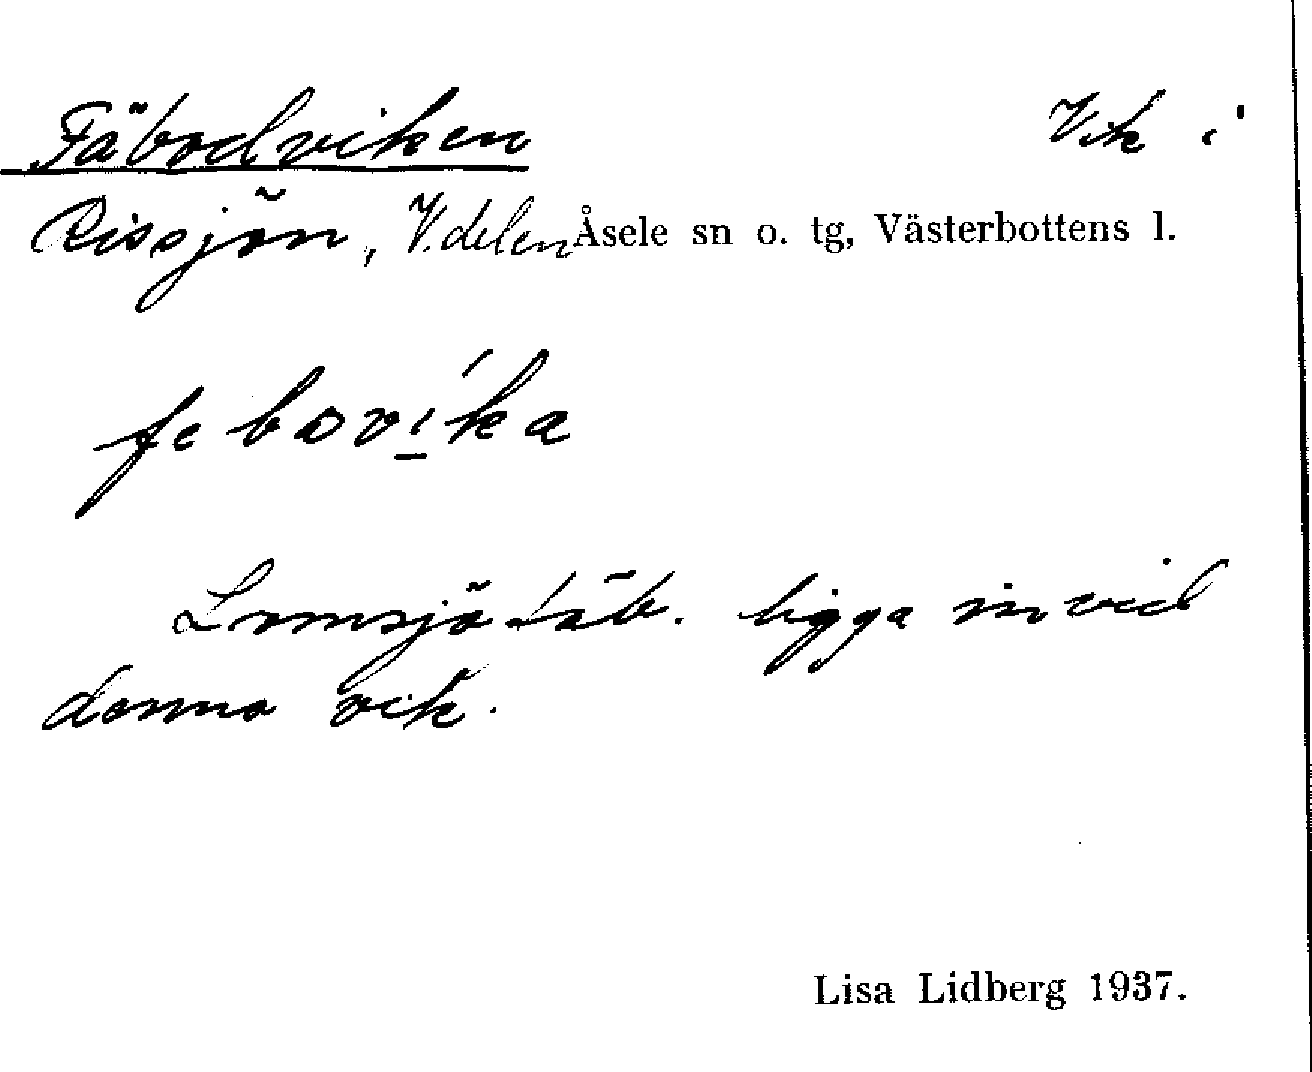 Fäbodviken Vik i
Rissjön, V. delen Åsele sn o. tg, Västerbottens l.
feboví̲ka
Lomsjö fäb. ligga invid
denna vik.
Lisa Lidberg 1937.